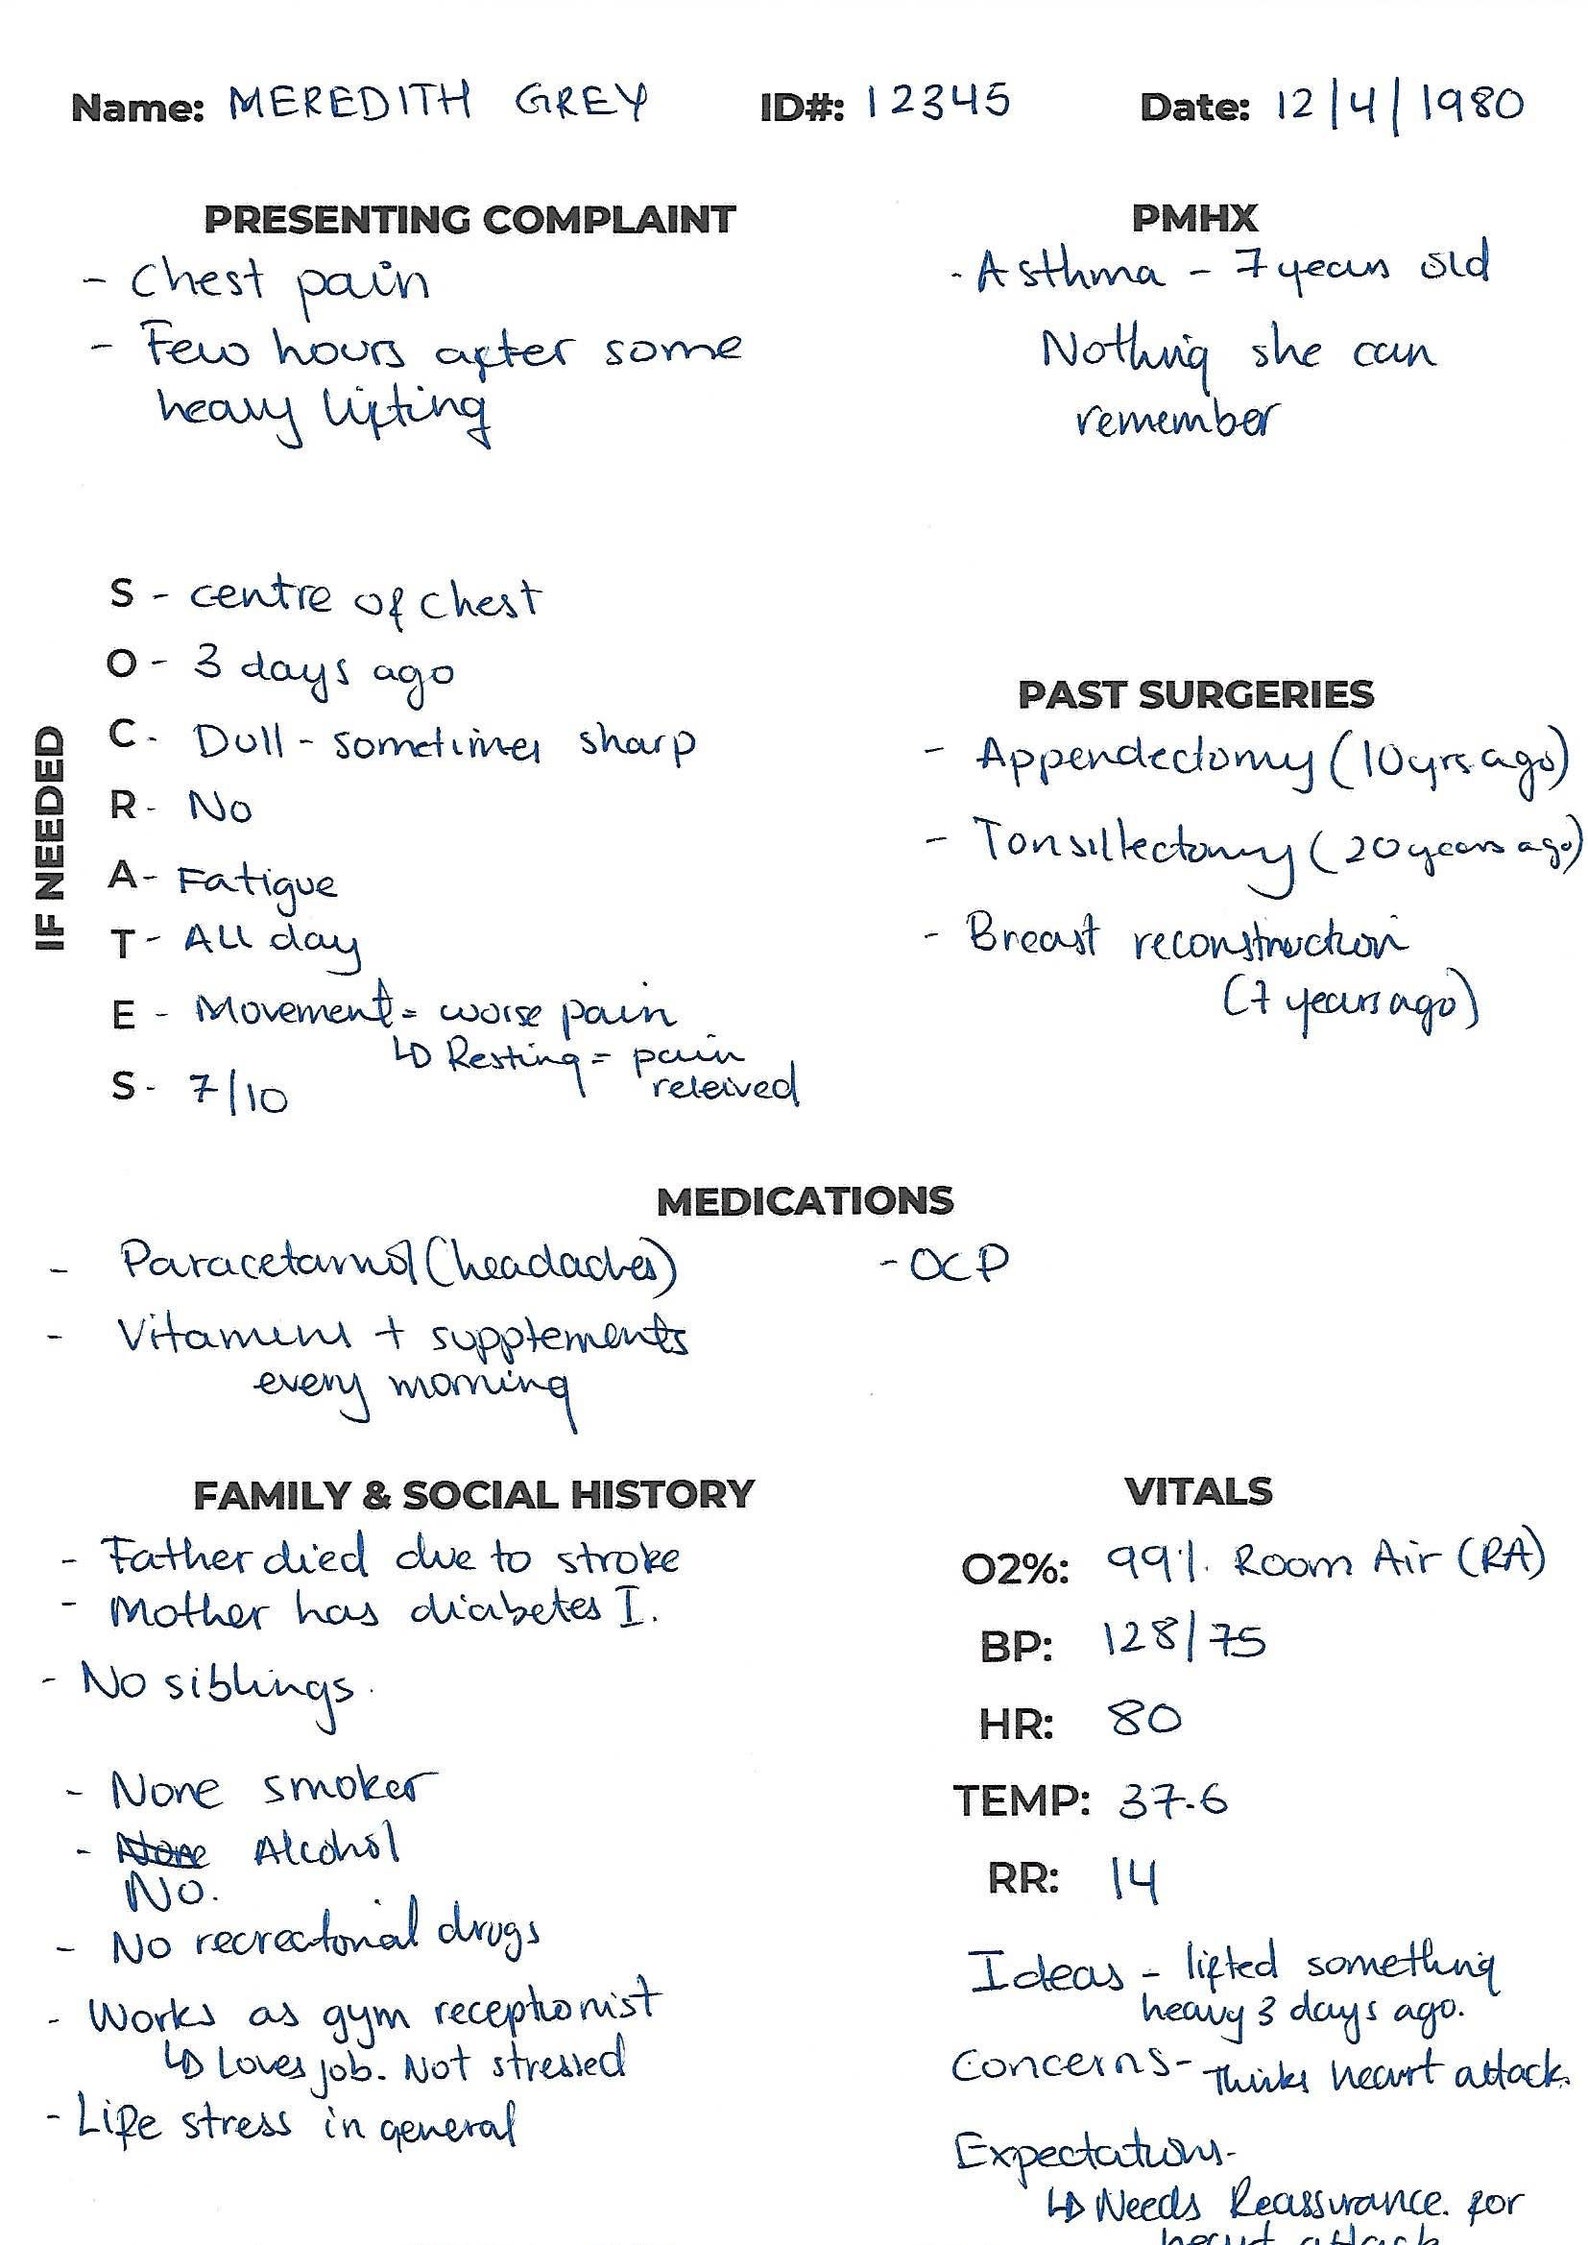 Name: MEREDITH GREY ID#: 12345 Date: 12/4/1980
PRESENTING COMPLAINT
- Chest pain
- Few hours after some
heavy lifting
PMHX
- Asthma - 7 years old
Nothing she can
remember
IF NEEDED
S - centre of chest
O - 3 days ago
C - Dull - sometimes sharp
R - No
A - Fatigue
T - All day
E - Movement = worse pain
↳ Resting = pain
releived
S - 7/10
PAST SURGERIES
- Appendectomy (10yrs ago)
- Tonsillectomy (20 years ago)
- Breast reconstruction
(7 years ago)
MEDICATIONS
- Paracetamol (headaches) - OCP
- Vitamins + supplements
every morning
FAMILY & SOCIAL HISTORY
- Father died due to stroke
- Mother has diabetes I.
- No siblings.
- None smoker
- None Alcohol
No.
- No recreational drugs
- Works as gym receptionist
↳ Loves job. Not stressed
- Life stress in general
VITALS
O2%: 99% Room Air (RA)
BP: 128/75
HR: 80
TEMP: 37.6
RR: 14
Ideas - lifted something
heavy 3 days ago.
Concerns - Thinks heart attack.
Expectations -
↳ Needs Reassurance. for
heart attack